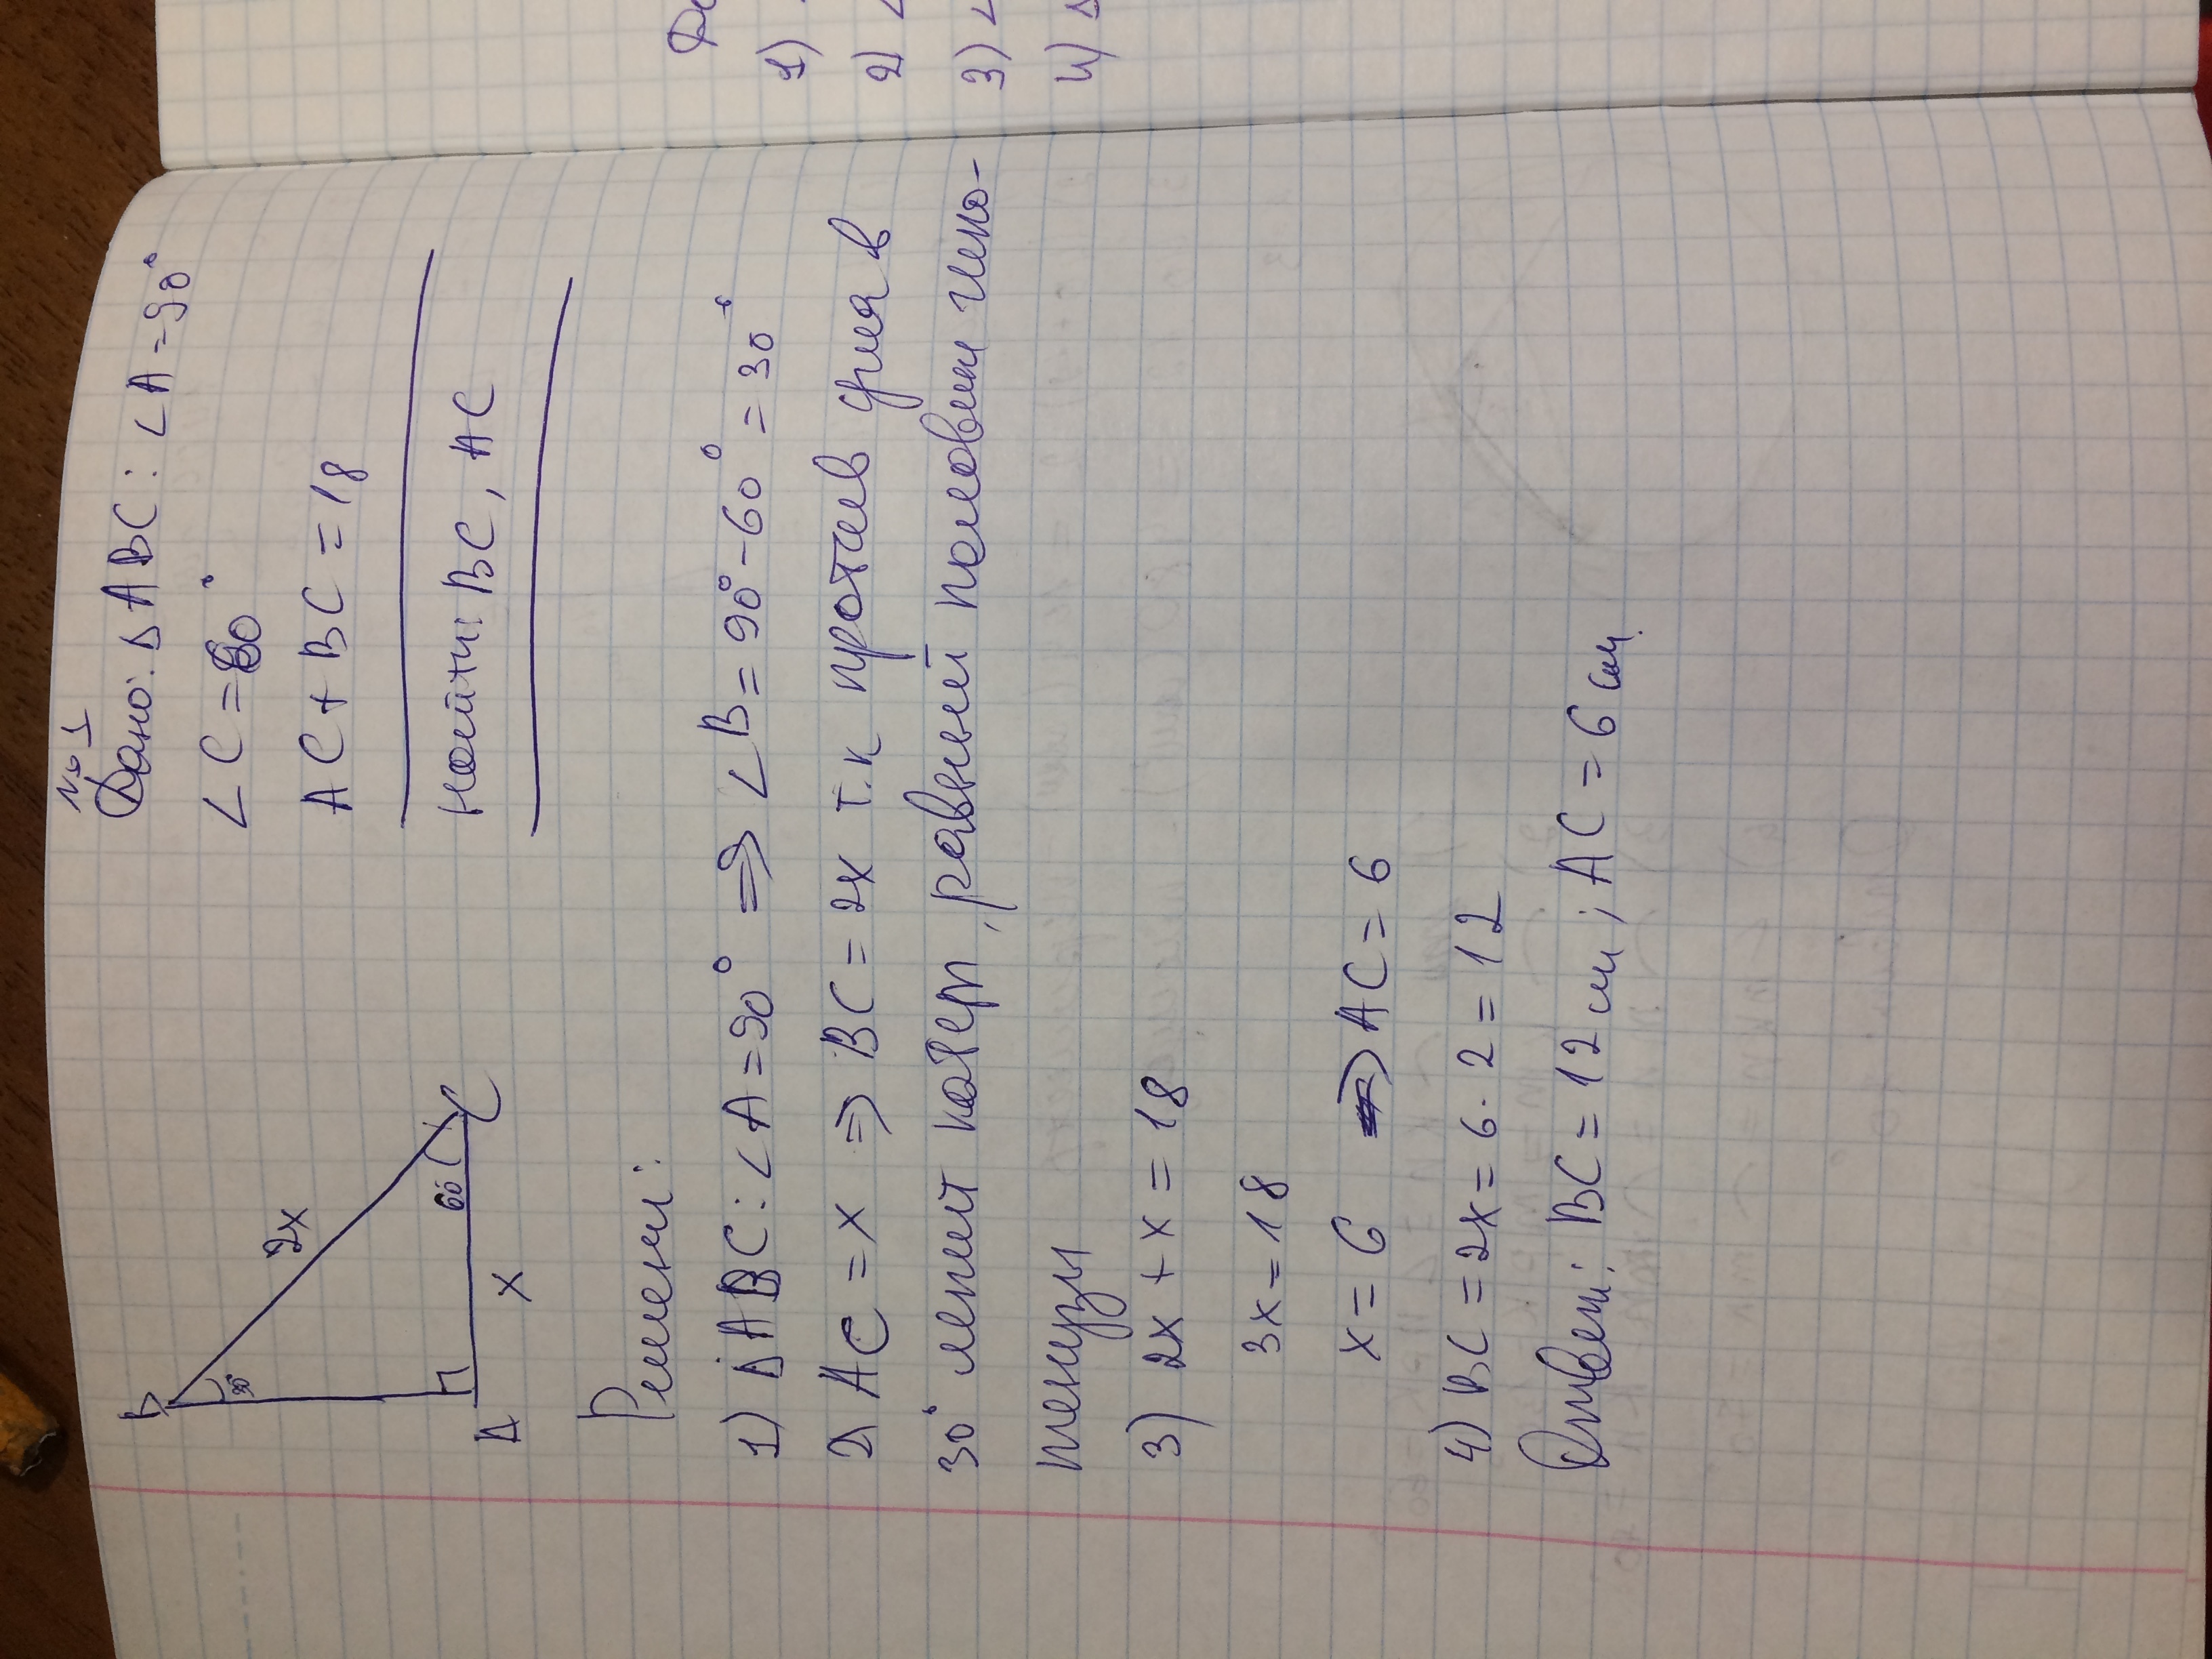 №1
Дано: ΔABC: ∠A=90°
∠C=60°
AC+BC=18
Найти: BC, AC
B
30
2x
60°
A
x
C
Решени:
1) ΔABC: ∠A=90° ⇒ ∠B=90°-60°=30°
2) AC=x ⇒ BC=2x т.к против угла в
30° лежит катет, равный половини гипо-
тенузы
3) 2x+x=18
3x=18
x=6 ⇒ AC=6
4) BC=2x=6·2=12
Ответ: BC=12 см; AC=6 см.
1)
2) ∠
3) ∠
4) Δ